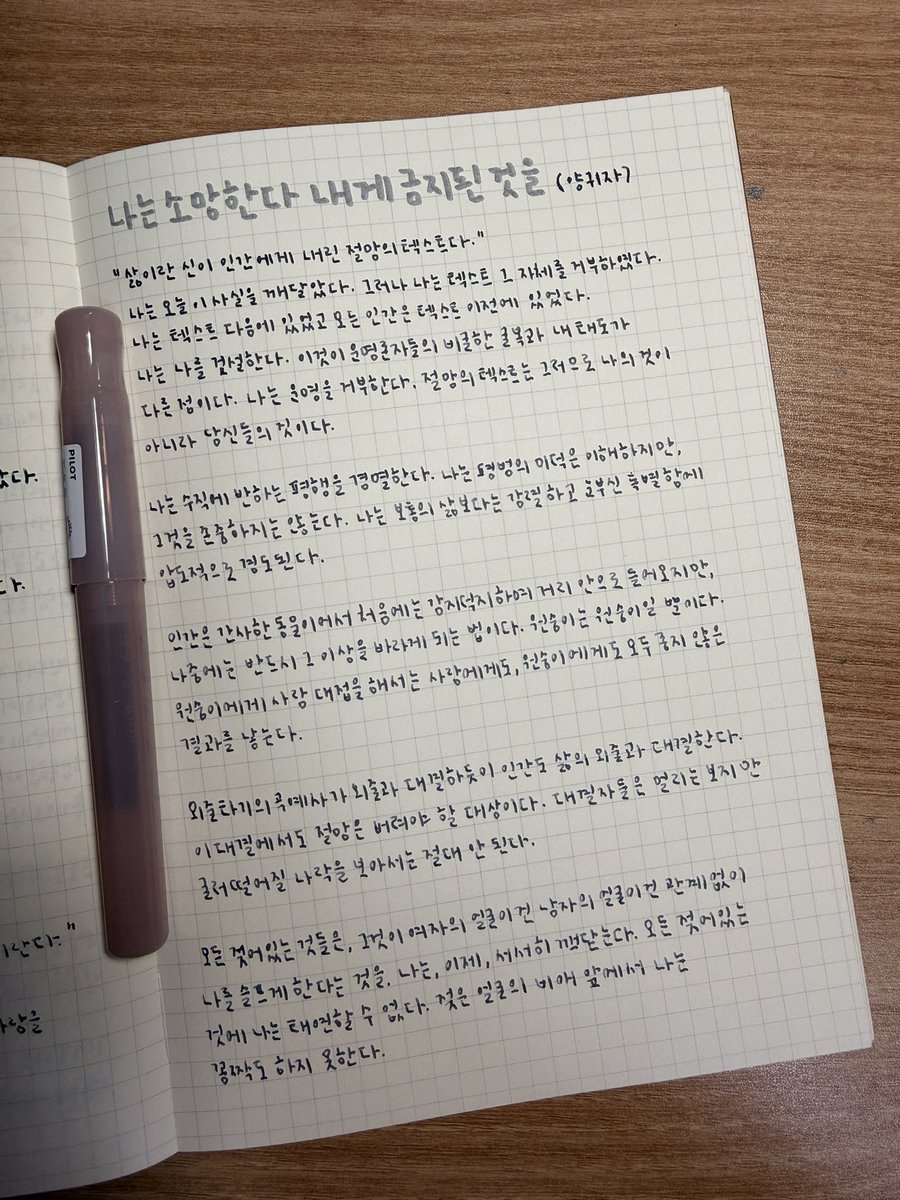 나는 소망한다 내게 금지된 것을 (양귀자)
"삶이란 신이 인간에게 내린 절망의 텍스트다."
나는 오늘 이 사실을 깨달았다. 그러나 나는 텍스트 그 자체를 거부하였다.
나는 텍스트 다음에 있었고 모든 인간은 텍스트 이전에 있었다.
나는 나를 건설한다. 이것이 운명론자들의 비굴한 굴복과 내 태도가
다른 점이다. 나는 운명을 거부한다. 절망의 텍스트는 그러므로 나의 것이
아니라 당신들의 것이다.
나는 수직에 반하는 평행을 경멸한다. 나는 평범의 미덕은 이해하지만,
그것을 존중하지는 않는다. 나는 보통의 삶보다는 강렬하고 눈부신 특별함에
압도적으로 경도된다.
인간은 간사한 동물이어서 처음에는 감지덕지하며 거리 안으로 들어오지만,
나중에는 반드시 그 이상을 바라게 되는 법이다. 원숭이는 원숭이일 뿐이다.
원숭이에게 사람 대접을 해서는 사람에게도, 원숭이에게도 모두 좋지 않은
결과를 낳는다.
외줄타기의 곡예사가 외줄과 대결하듯이 인간도 삶의 외줄과 대결한다.
이 대결에서도 절망은 버려야 할 대상이다. 대결자들은 멀리는 보지만
굴러떨어질 나락을 보아서는 절대 안 된다.
모든 젖어있는 것들은, 그것이 여자의 얼굴이건 남자의 얼굴이건 관계없이
나를 슬프게 한다는 것을, 나는, 이제, 서서히 깨닫는다. 모든 젖어있는
것에 나는 태연할 수 없다. 젖은 얼굴의 비애 앞에서 나는
꼼짝도 하지 못한다.
PILOT
았다.
다.
간다."
사랑을